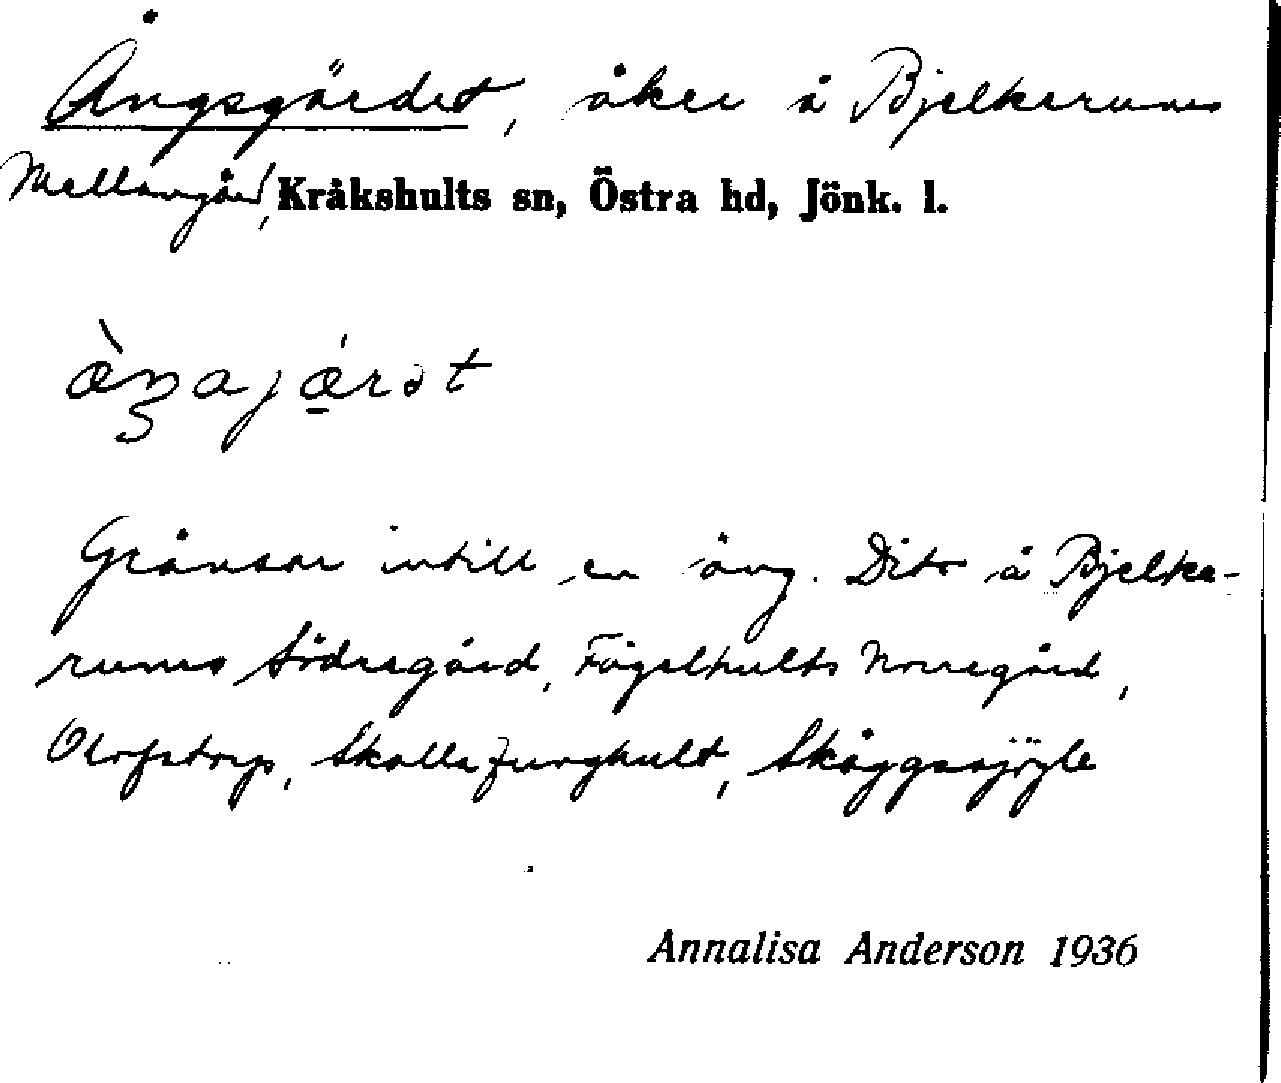 Ängsgärdet, åker å Bjelkerums
Mellangård, Kråkshults sn, Östra hd, Jönk. l.
æ̀ŋajǽ̠rət
Gränsar intill en äng. Dito å Bjelke-
rums Södregård, Fågelhults Norregård,
Olofstorp, Skallefunghult, Skäggsajöyle
Annalisa Anderson 1936